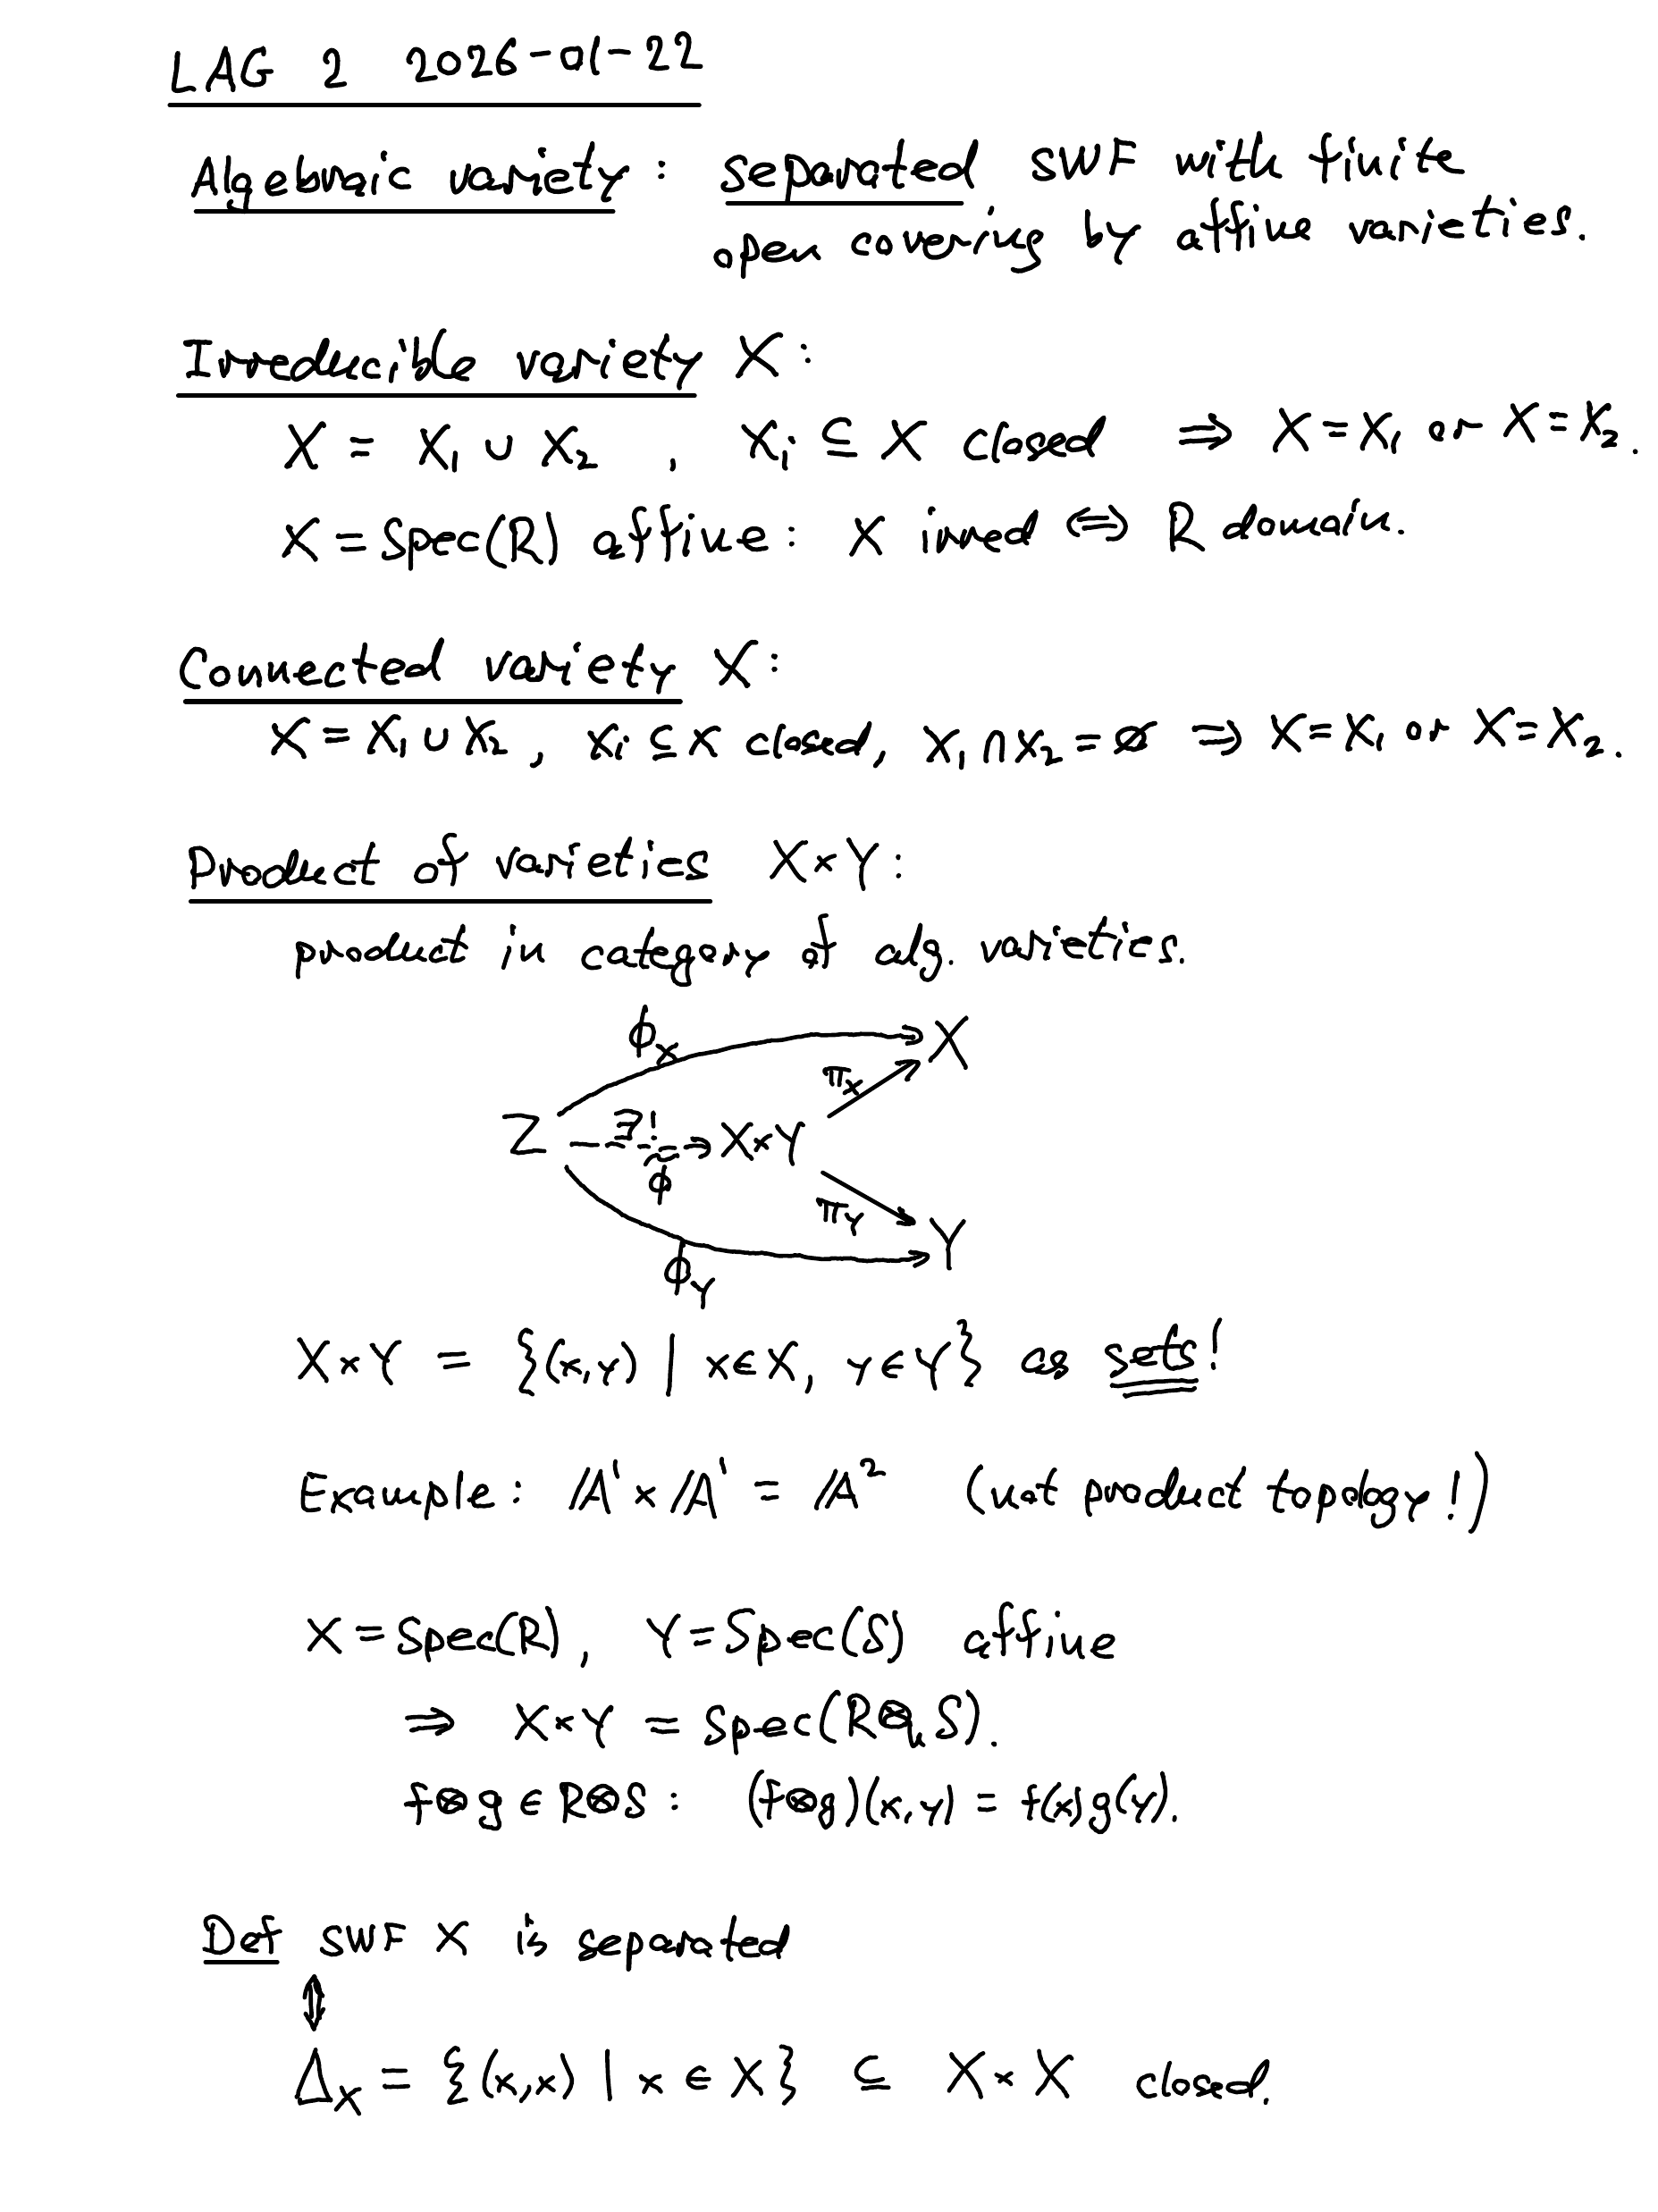 LAG 2 2026-01-22
Algebraic variety : separated SWF with finite
open covering by affine varieties.
Irreducible variety X :
X = X₁ ∪ X₂ , Xᵢ ⊆ X closed ⇒ X = X₁ or X = X₂ .
X = Spec(R) affine : X irred ⇔ R domain.
Connected variety X :
X = X₁ ∪ X₂ , Xᵢ ⊆ X closed, X₁ ∩ X₂ = ∅ ⇒ X = X₁ or X = X₂ .
Product of varieties X×Y :
product in category of alg. varieties.
ϕ_X X
π_X
Z ∃! X×Y
ϕ
π_Y
Y
ϕ_Y
X×Y = {(x,y) | x∈X, y∈Y} as sets!
Example : 𝔸¹ × 𝔸¹ = 𝔸² (not product topology!)
X = Spec(R), Y = Spec(S) affine
⇒ X×Y = Spec(R⊗ₖS).
f⊗g ∈ R⊗S : (f⊗g)(x,y) = f(x)g(y).
Def SWF X is separated
⇕
Δ_X = {(x,x) | x ∈ X} ⊆ X×X closed.